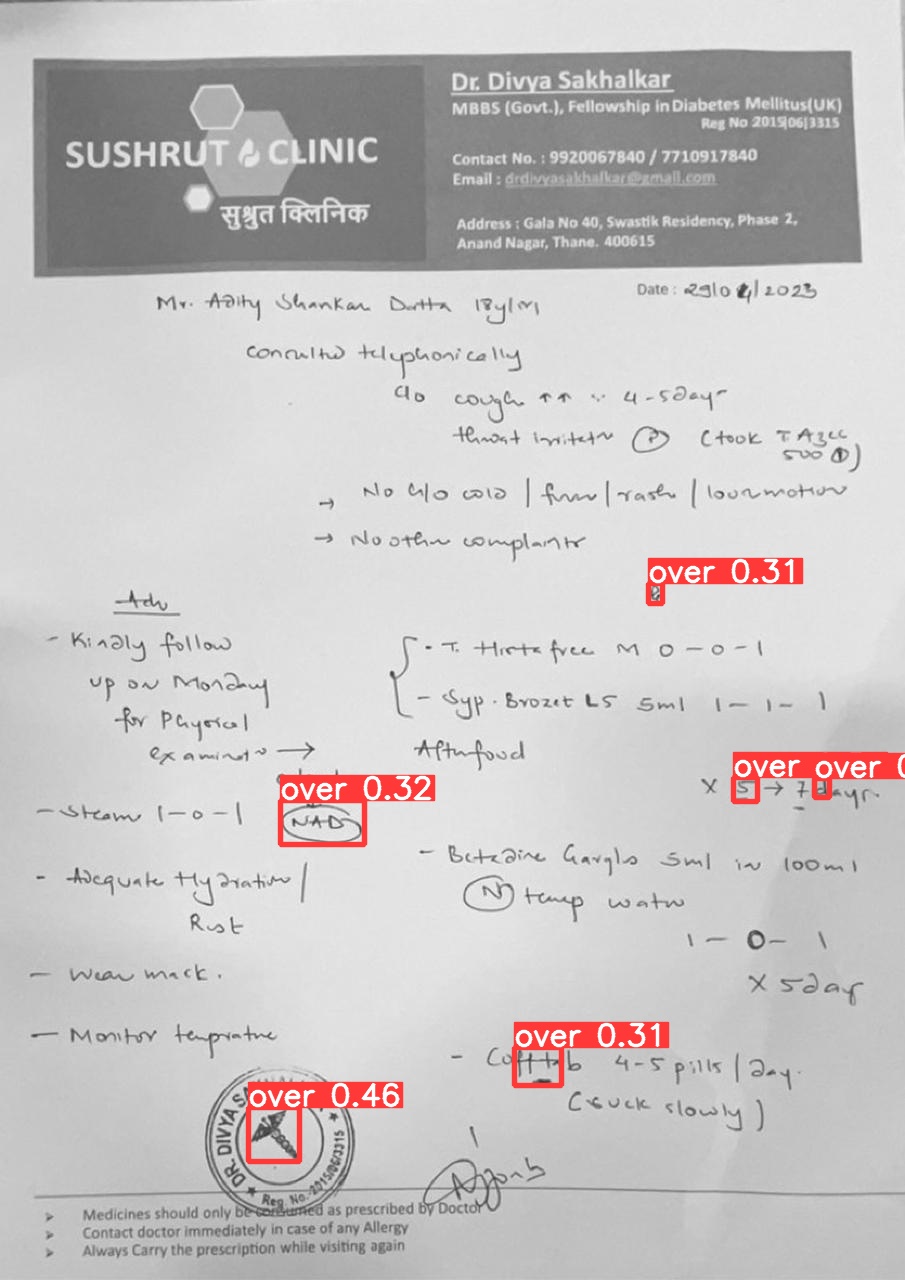 SUSHRUT CLINIC
सुश्रुत क्लिनिक
Dr. Divya Sakhalkar
MBBS (Govt.), Fellowship in Diabetes Mellitus(UK)
Reg No 2015|06|3315
Contact No. : 9920067840 / 7710917840
Email : drdivyasakhalkar@gmail.com
Address : Gala No 40, Swastik Residency, Phase 2,
Anand Nagar, Thane. 400615
Date : 29/04/2023
Mr. Adity Shankar Dutta 18y/m
Consulted telephonically
c/o cough ↑↑ 4-5 days
throat irritatn (P) (took T Azee
500 ①)
→ No c/o cold / fever / rash / loosemotion
→ No other complaints
over 0.31
Adv
- Kindly follow
up on Monday
for Physical
examinatn →
over 0.32
NAD
- Steam 1-0-1
- Adequate Hydration /
Rest
- Wear mask.
- Monitor temprature
- T. Histafree M 0-0-1
- Syp. Brozet LS 5ml 1-1-1
After food
over over 0
x 5 → 7 days.
- Betadine Gargles 5ml in 100ml
(N) temp water
1 - 0 - 1
x 5 day
over 0.31
- Cofttab 4-5 pills / day.
(suck slowly)
over 0.46
DR. DIVYA
Reg. No.-2015/06/3315
➤ Medicines should only be consumed as prescribed by Doctor
➤ Contact doctor immediately in case of any Allergy
➤ Always Carry the prescription while visiting again